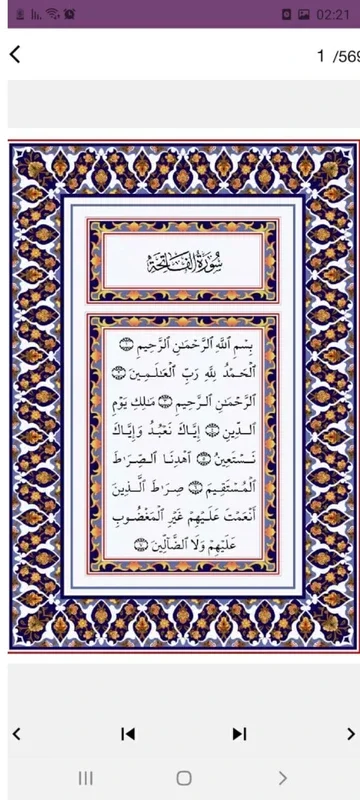 02:21
1 /569
سُورَةُ الفَاتِحَةِ
بِسْمِ ٱللَّهِ ٱلرَّحْمَـٰنِ ٱلرَّحِيمِ ۝١
ٱلْحَمْدُ لِلَّهِ رَبِّ ٱلْعَـٰلَمِينَ ۝٢
ٱلرَّحْمَـٰنِ ٱلرَّحِيمِ ۝٣ مَـٰلِكِ يَوْمِ
ٱلدِّينِ ۝٤ إِيَّاكَ نَعْبُدُ وَإِيَّاكَ
نَسْتَعِينُ ۝٥ ٱهْدِنَا ٱلصِّرَٰطَ
ٱلْمُسْتَقِيمَ ۝٦ صِرَٰطَ ٱلَّذِينَ
أَنْعَمْتَ عَلَيْهِمْ غَيْرِ ٱلْمَغْضُوبِ
عَلَيْهِمْ وَلَا ٱلضَّآلِّينَ ۝٧